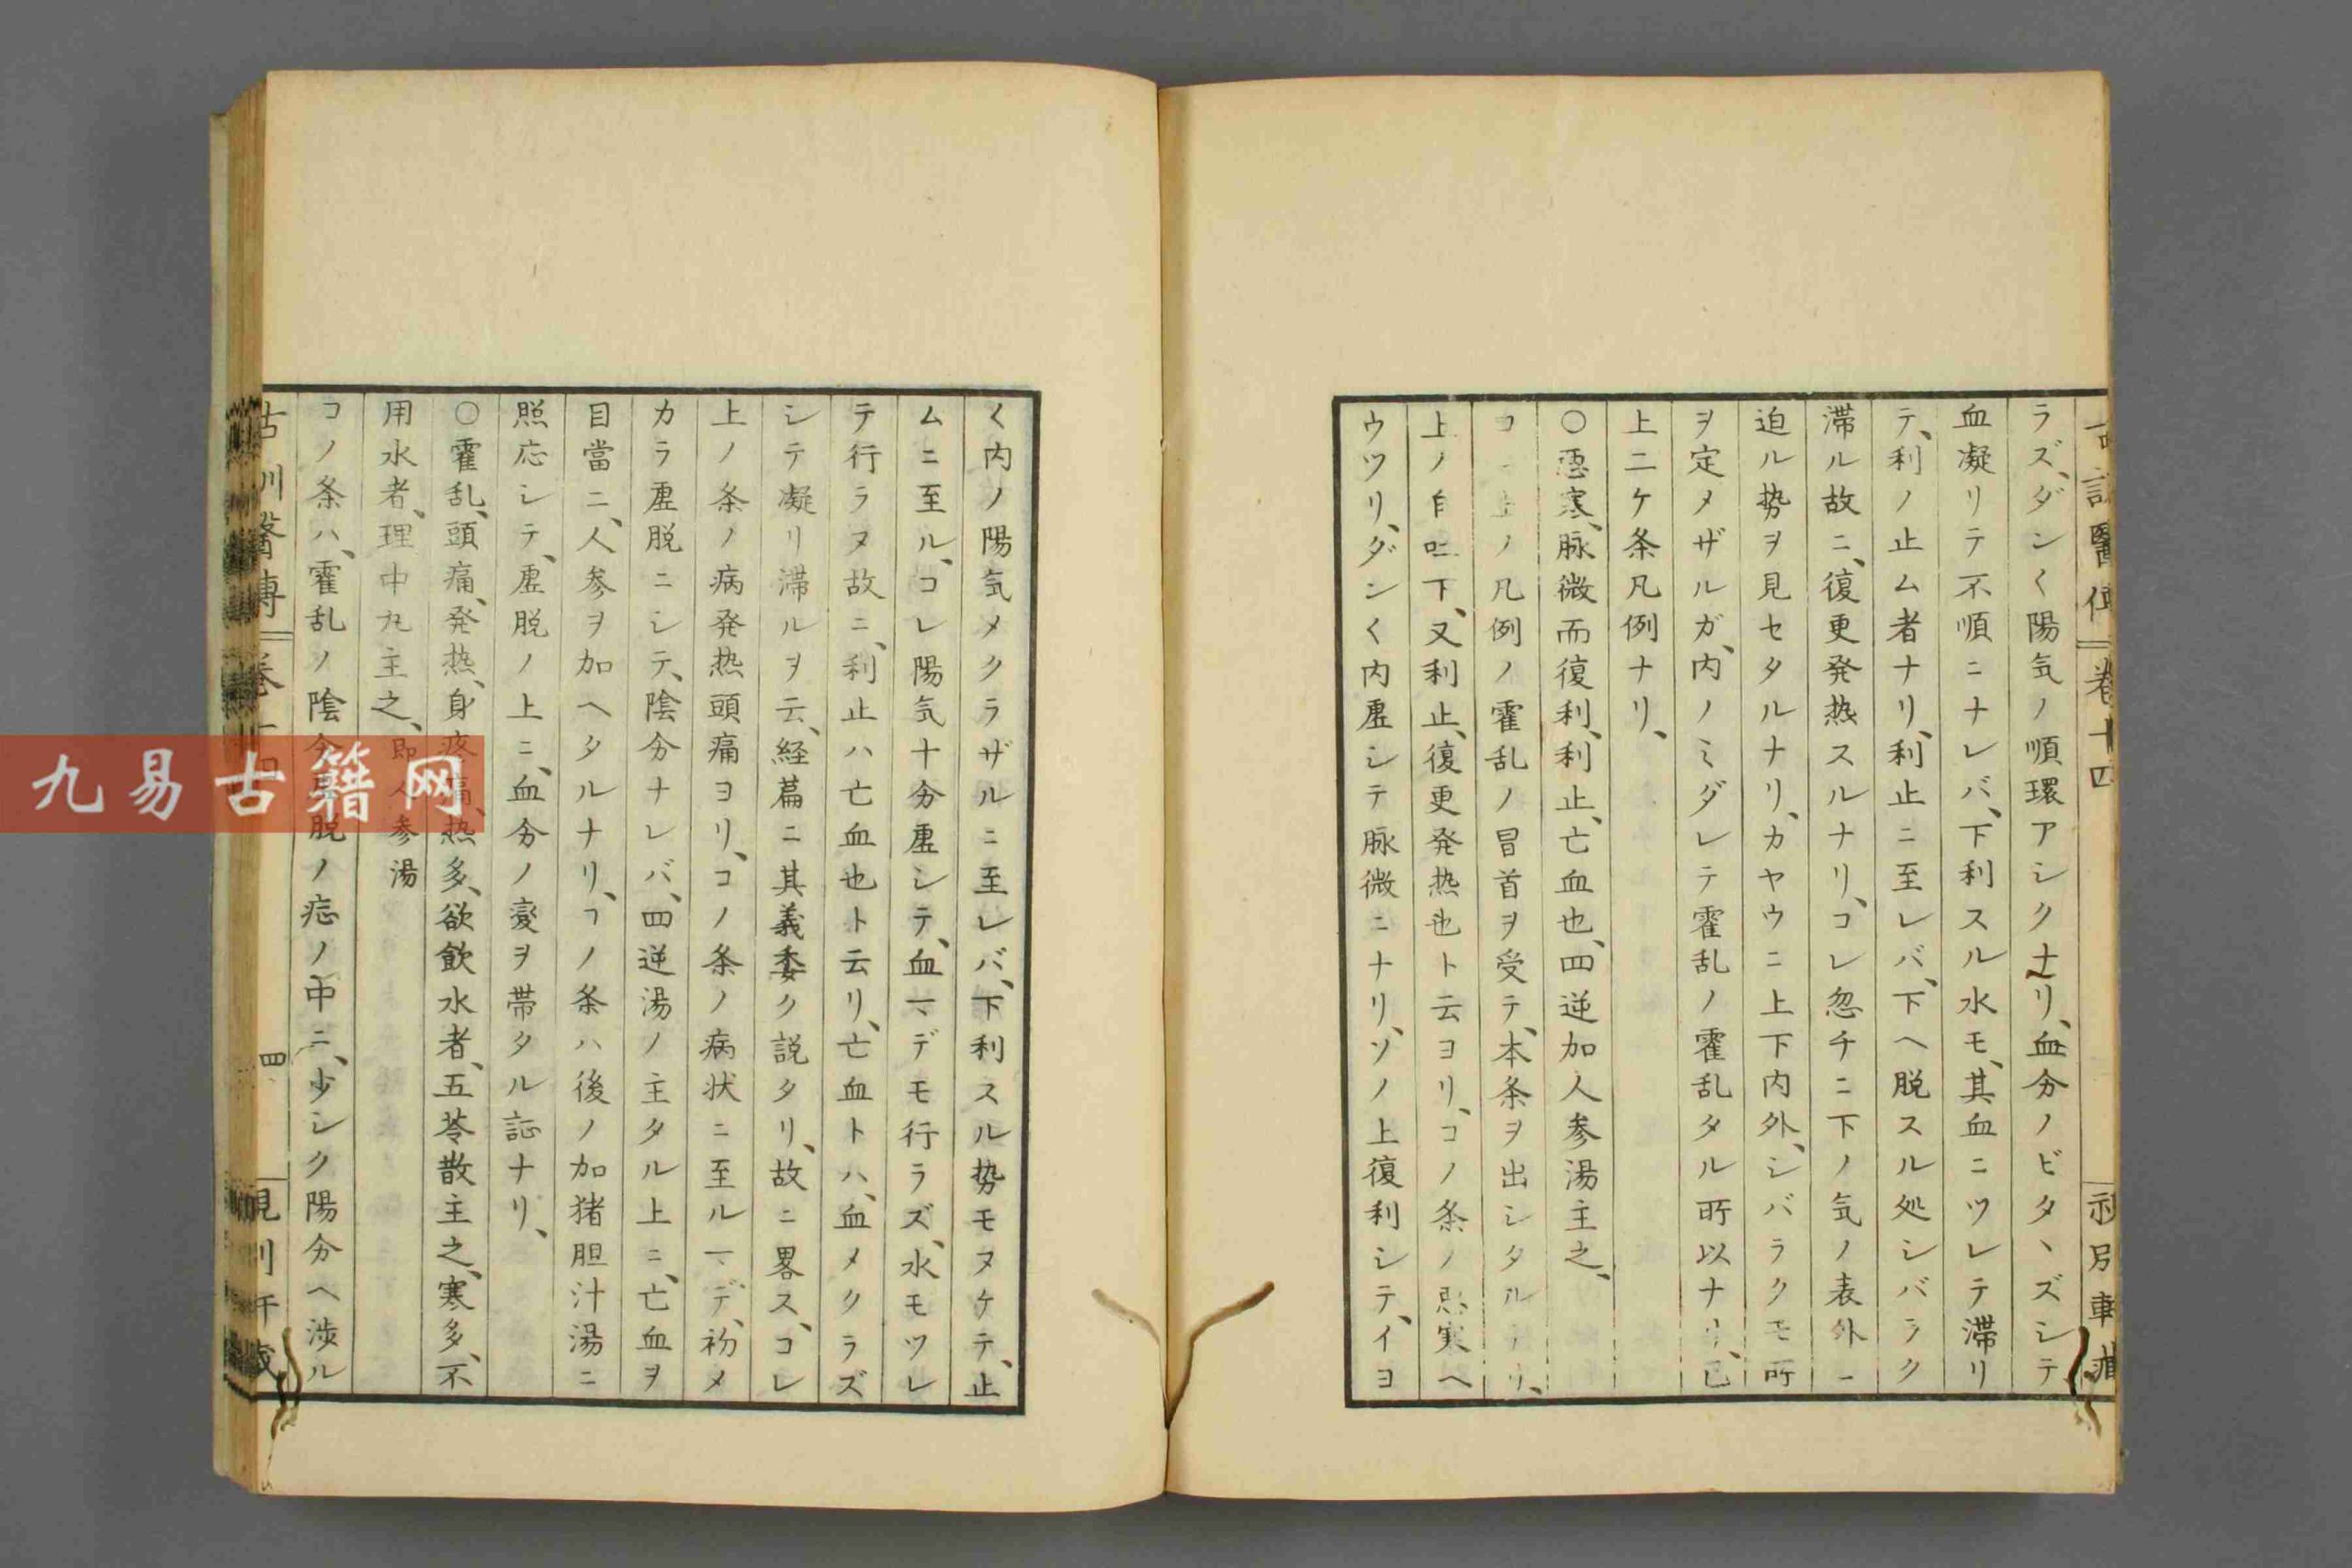 ラズ、ダンく陽気ノ順環アシクナリ、血分ノビタヽズシテ
血凝リテ不順ニナレバ、下利スル水モ、其血ニツレテ滞リ
テ、利ノ止ム者ナリ、利止ニ至レバ、下ヘ脱スル処シバラク
滞ル故ニ、復更発热スルナリ、コレ忽チニ下ノ気ノ表外ー
迫ル势ヲ見セタルナリ、カヤウニ上下内外、シバラクモ所
ヲ定メザルガ、内ノミダレテ霍乱ノ霍乱タル所以ナリ、已
上二ケ条凡例ナリ、
〇惡寒、脉微而復利、利止、亡血也、四逆加人参湯主之、
上ノ凡例ノ霍乱ノ冒首ヲ受テ、本条ヲ出シタルナリ、
上ノ自吐下、又利止、復更発热也ト云ヨリ、コノ条ノ惡寒ヘ
ウツリ、ダンく内虚シテ脉微ニナリ、ソノ上復利シテ、イヨ
く内ノ陽気メクラザルニ至レバ、下利スル势モヌケテ、止
ムニ至ル、コレ陽気十分虚シテ、血マデモ行ラズ、水モツレ
テ行ラヌ故ニ、利止ハ亡血也ト云リ、亡血トハ、血メクラズ
シテ凝リ滞ルヲ云、経篇ニ其義委ク説タリ、故ニ畧ス、コレ
上ノ条ノ病発热頭痛ヨリ、コノ条ノ病状ニ至ルマデ、初メ
カラ虚脱ニシテ、陰分ナレバ、四逆湯ノ主タル上ニ、亡血ヲ
目當ニ、人参ヲ加ヘタルナリ、コノ条ハ後ノ加猪胆汁湯ニ
照応シテ、虚脱ノ上ニ、血分ノ変ヲ帯タル証ナリ、
〇霍乱、頭痛、発热、身疼痛、热多、欲飲水者、五苓散主之、寒多、不
用水者、理中丸主之、即人参湯
コノ条ハ、霍乱ノ陰分虚脱ノ症ノ中ニ、少シク陽分ヘ渉ル
古訓醫傳 卷十四
四
九易古籍网